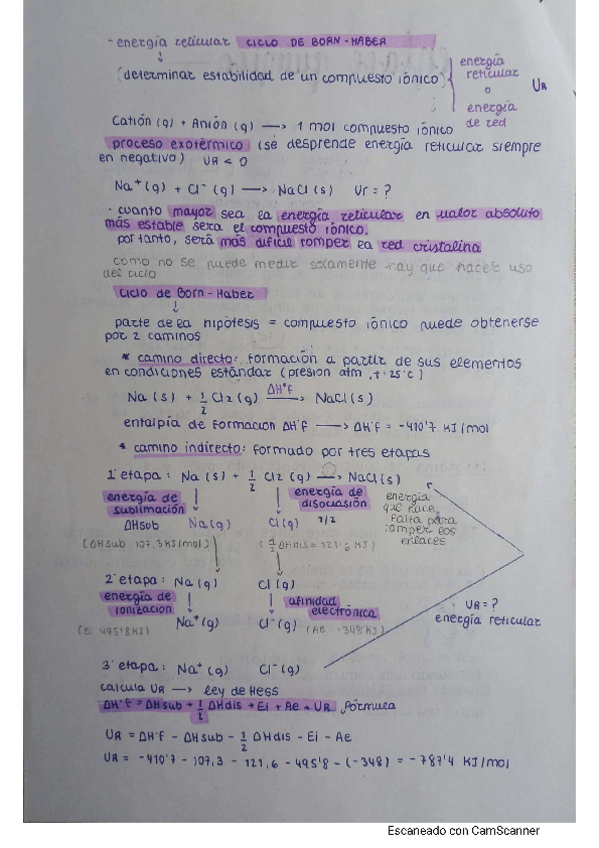 - energía reticular CICLO DE BORN-HABER
(determinar estabilidad de un compuesto iónico)
energía reticular o energía de red
UR
Catión (g) + Anión (g) → 1 mol compuesto iónico
proceso exotérmico (se desprende energía reticular siempre
en negativo) UR < 0
Na⁺(g) + Cl⁻(g) → NaCl(s) Ur = ?
· cuanto mayor sea la energía reticular en valor absoluto
más estable será el compuesto iónico.
por tanto, será más difícil romper la red cristalina
como no se puede medir solamente hay que hacer uso
del ciclo
Ciclo de Born-Haber
parte de la hipótesis = compuesto iónico puede obtenerse
por 2 caminos
* camino directo: formación a partir de sus elementos
en condiciones estándar (presión atm, t· 25°C)
Na (s) + 1/2 Cl2 (g) ΔH°f → NaCl(s)
entalpía de formación ΔH°f → ΔH°f = -410'7 KJ/mol
* camino indirecto: formado por tres etapas
1ª etapa: Na (s) + 1/2 Cl2 (g) → NaCl(s)
energía de sublimación
energía de disociación
energía que hace falta para romper los enlaces
ΔHsub Na(g) Cl(g) 1/2
(ΔHsub 107,3 KJ/mol) (1/2 ΔHdis = 121'6 KJ)
2ª etapa: Na(g) Cl(g)
energía de ionización
afinidad electrónica
UR = ?
energía reticular
Na⁺(g) Cl⁻(g)
495'8KJ) (Ae -348KJ)
3ª etapa: Na⁺(g) Cl⁻(g)
calcula UR → ley de Hess
ΔH°f = ΔHsub + 1/2 ΔHdis + Ei + Ae + UR fórmula
UR = ΔH°f - ΔHsub - 1/2 ΔHdis - Ei - Ae
UR = -410'7 - 107,3 - 121,6 - 495'8 - (-348) = -787'4 KJ/mol
Escaneado con CamScanner